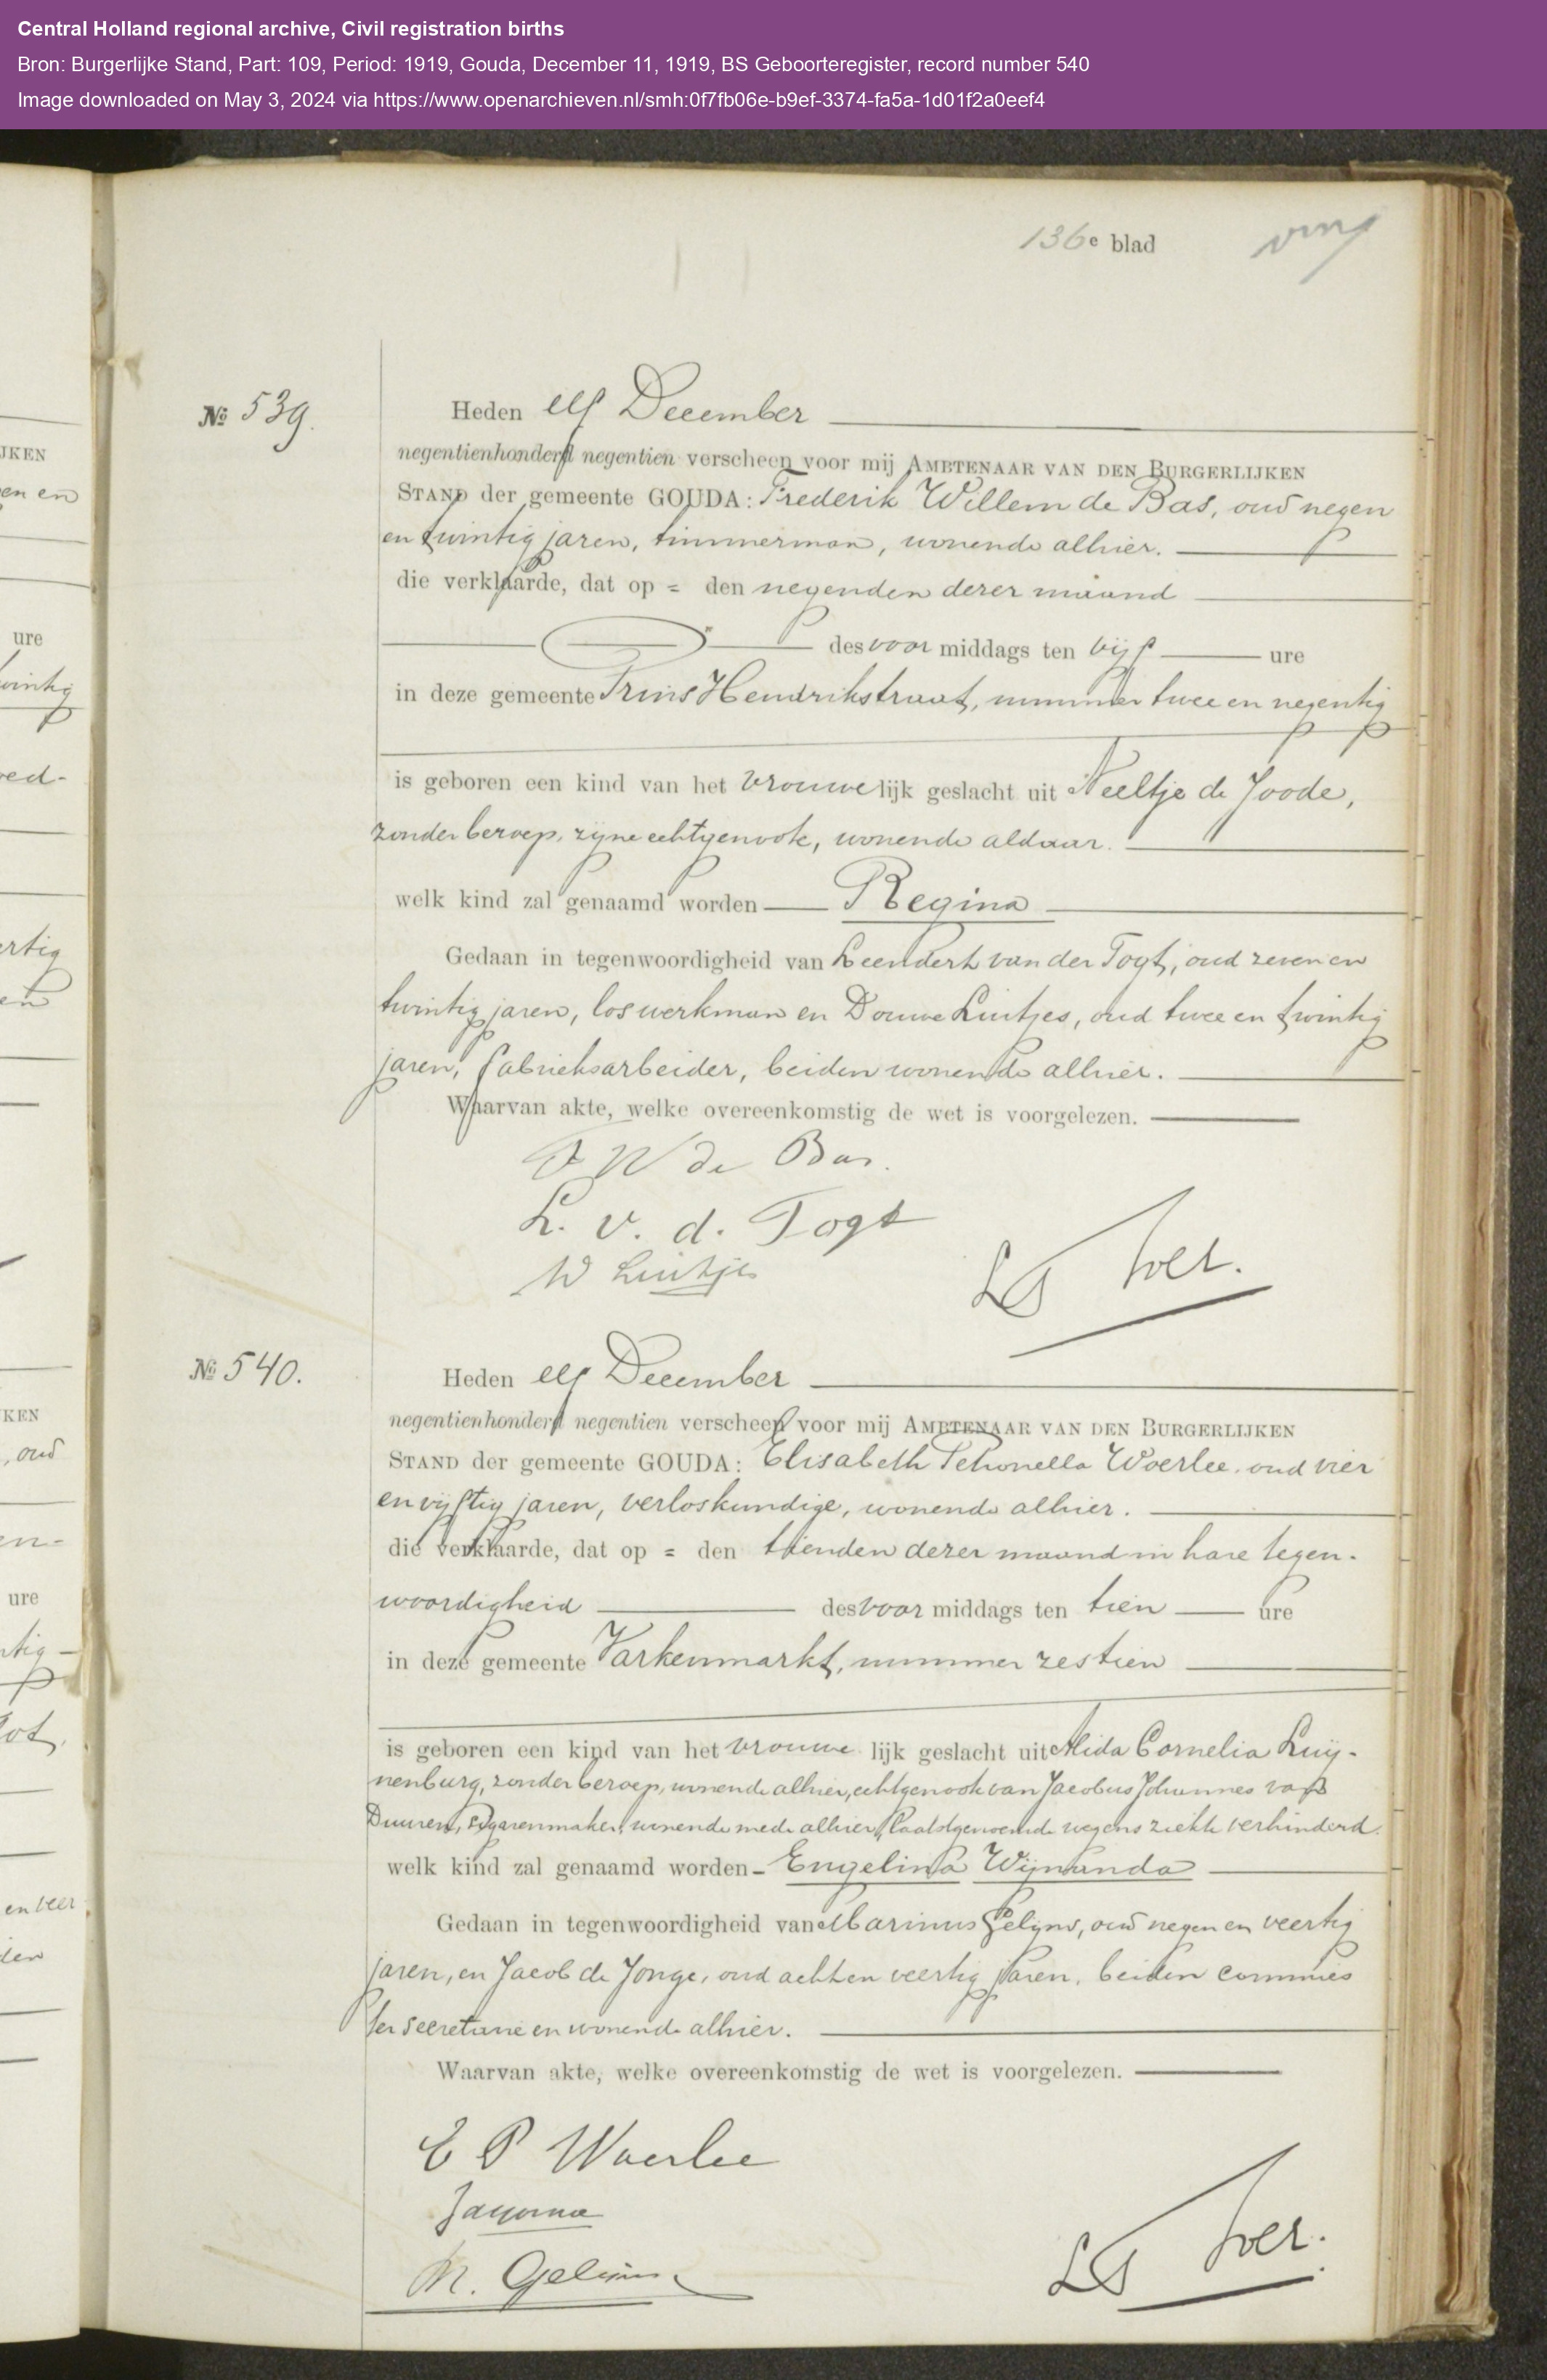 Central Holland regional archive, Civil registration births
Bron: Burgerlijke Stand, Part: 109, Period: 1919, Gouda, December 11, 1919, BS Geboorteregister, record number 540
Image downloaded on May 3, 2024 via https://www.openarchieven.nl/smh:0f7fb06e-b9ef-3374-fa5a-1d01f2a0eef4
136e blad
№ 539.
Heden elf December
negentienhonderd negentien verscheen voor mij AMBTENAAR VAN DEN BURGERLIJKEN
STAND der gemeente GOUDA: Frederik Willem de Bas, oud negen
en twintig jaren, timmerman, wonende alhier.
die verklaarde, dat op = den negenden dezer maand
des voor middags ten vijf ure
in deze gemeente Prins Hendrikstraat, nummer twee en negentig
is geboren een kind van het vrouwelijk geslacht uit Neeltje de Joode,
zonder beroep, zijne echtgenoote, wonende aldaar.
welk kind zal genaamd worden Regina
Gedaan in tegenwoordigheid van Leendert van der Togt, oud zeven en
twintig jaren, los werkman en Douwe Luitjes, oud twee en twintig
jaren, fabrieksarbeider, beiden wonende alhier.
Waarvan akte, welke overeenkomstig de wet is voorgelezen.
F W de Bas.
L. v. d. Togt
W Luitjes
№ 540.
Heden elf December
negentienhonderd negentien verscheen voor mij AMBTENAAR VAN DEN BURGERLIJKEN
STAND der gemeente GOUDA: Elisabeth Petronella Woerlee, oud vier
en vijftig jaren, verloskundige, wonende alhier.
die verklaarde, dat op = den tienden dezer maand in hare tegen-
woordigheid des voor middags ten tien ure
in deze gemeente Varkenmarkt, nummer zestien
is geboren een kind van het vrouwe lijk geslacht uit Alida Cornelia Luij-
nenburg, zonder beroep, wonende alhier, echtgenoote van Jacobus Johannes van
Duuren, sigarenmaker, wonende mede alhier, laatstgenoemde wegens ziekte verhinderd.
welk kind zal genaamd worden Engelina Wijnanda
Gedaan in tegenwoordigheid van Marinus Gelijns, oud negen en veertig
jaren, en Jacob de Jonge, oud acht en veertig jaren, beiden commies
ter secretarie en wonende alhier.
Waarvan akte, welke overeenkomstig de wet is voorgelezen.
E P Woerlee
M. Gelijns